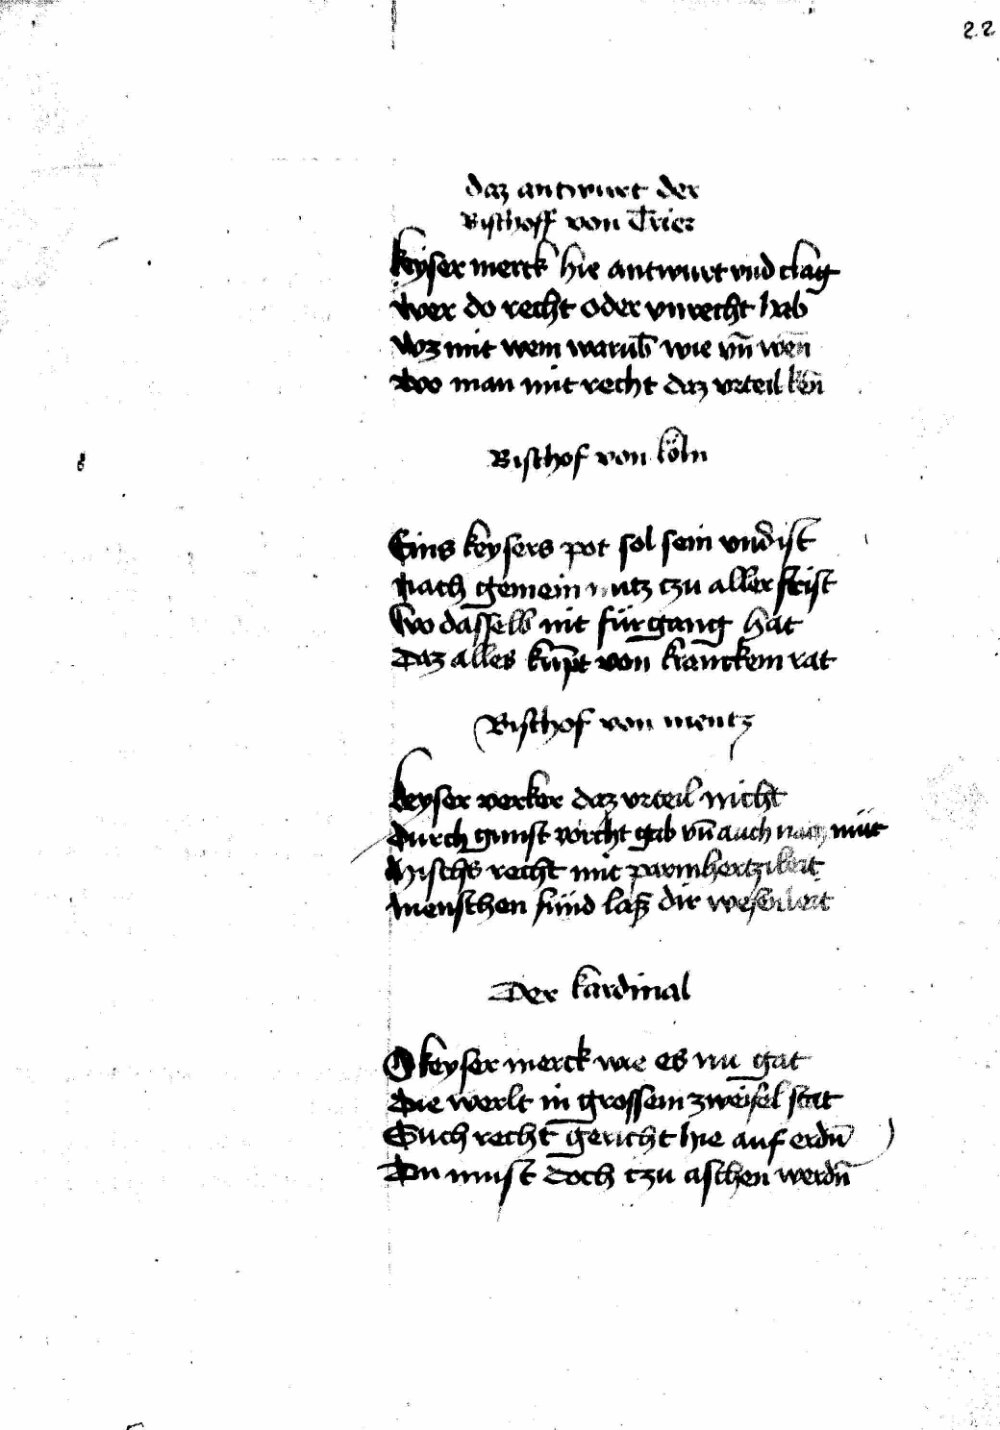 22
daz antwurt der
Bischoff von Trier
keyser merck hie antwurt vnd clag
wer do recht oder vnrecht hab
wz mit wem warūb wie vn̄ wen̄
wo man mit recht daz vrteil ken̄
Bischof von köln
Eins keysers pot sol sein vnd ist
nach gemein nutz tzu aller frist
wo dasselb nit fürgang hat
Daz alles kūpt von kranckem rat
Bischof von mentz
keyser verker daz vrteil nicht
durch gunst vorcht gab vn̄ auch müt
Mischs recht mit parmhertzikeit
menschen sünd laß dir wesen leit
Der kardinal
O keyser merck wie es nu gat
Die werlt in grossem zweifel stat
Such recht gericht hie auf erdn̄
Du must doch tzu aschen werdn̄